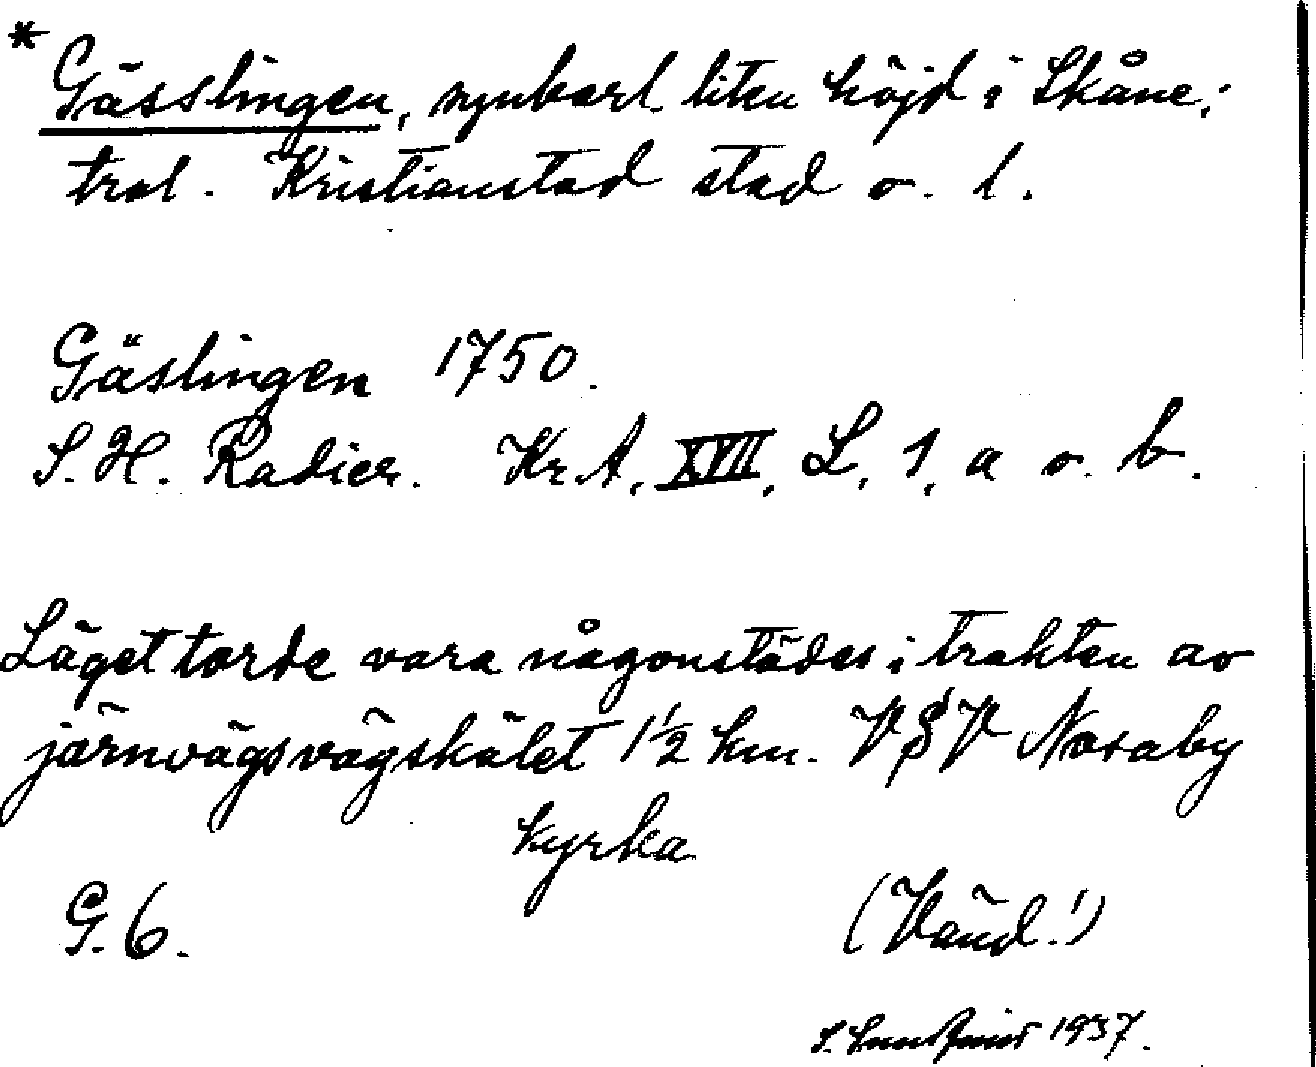 * Gässlingen, synbarl. liten höjd i Skåne;
trol. Kristianstad stad o. l.
Gäslingen 1750.
S. H. Radier. Kr. A, XVII, L, 1, a o. b.
Läget torde vara någonstädes i trakten av
järnvägsvägskälet 1½ km. VSV Nosaby
kyrka
G. 6.
(Vänd!)
S. 1937.